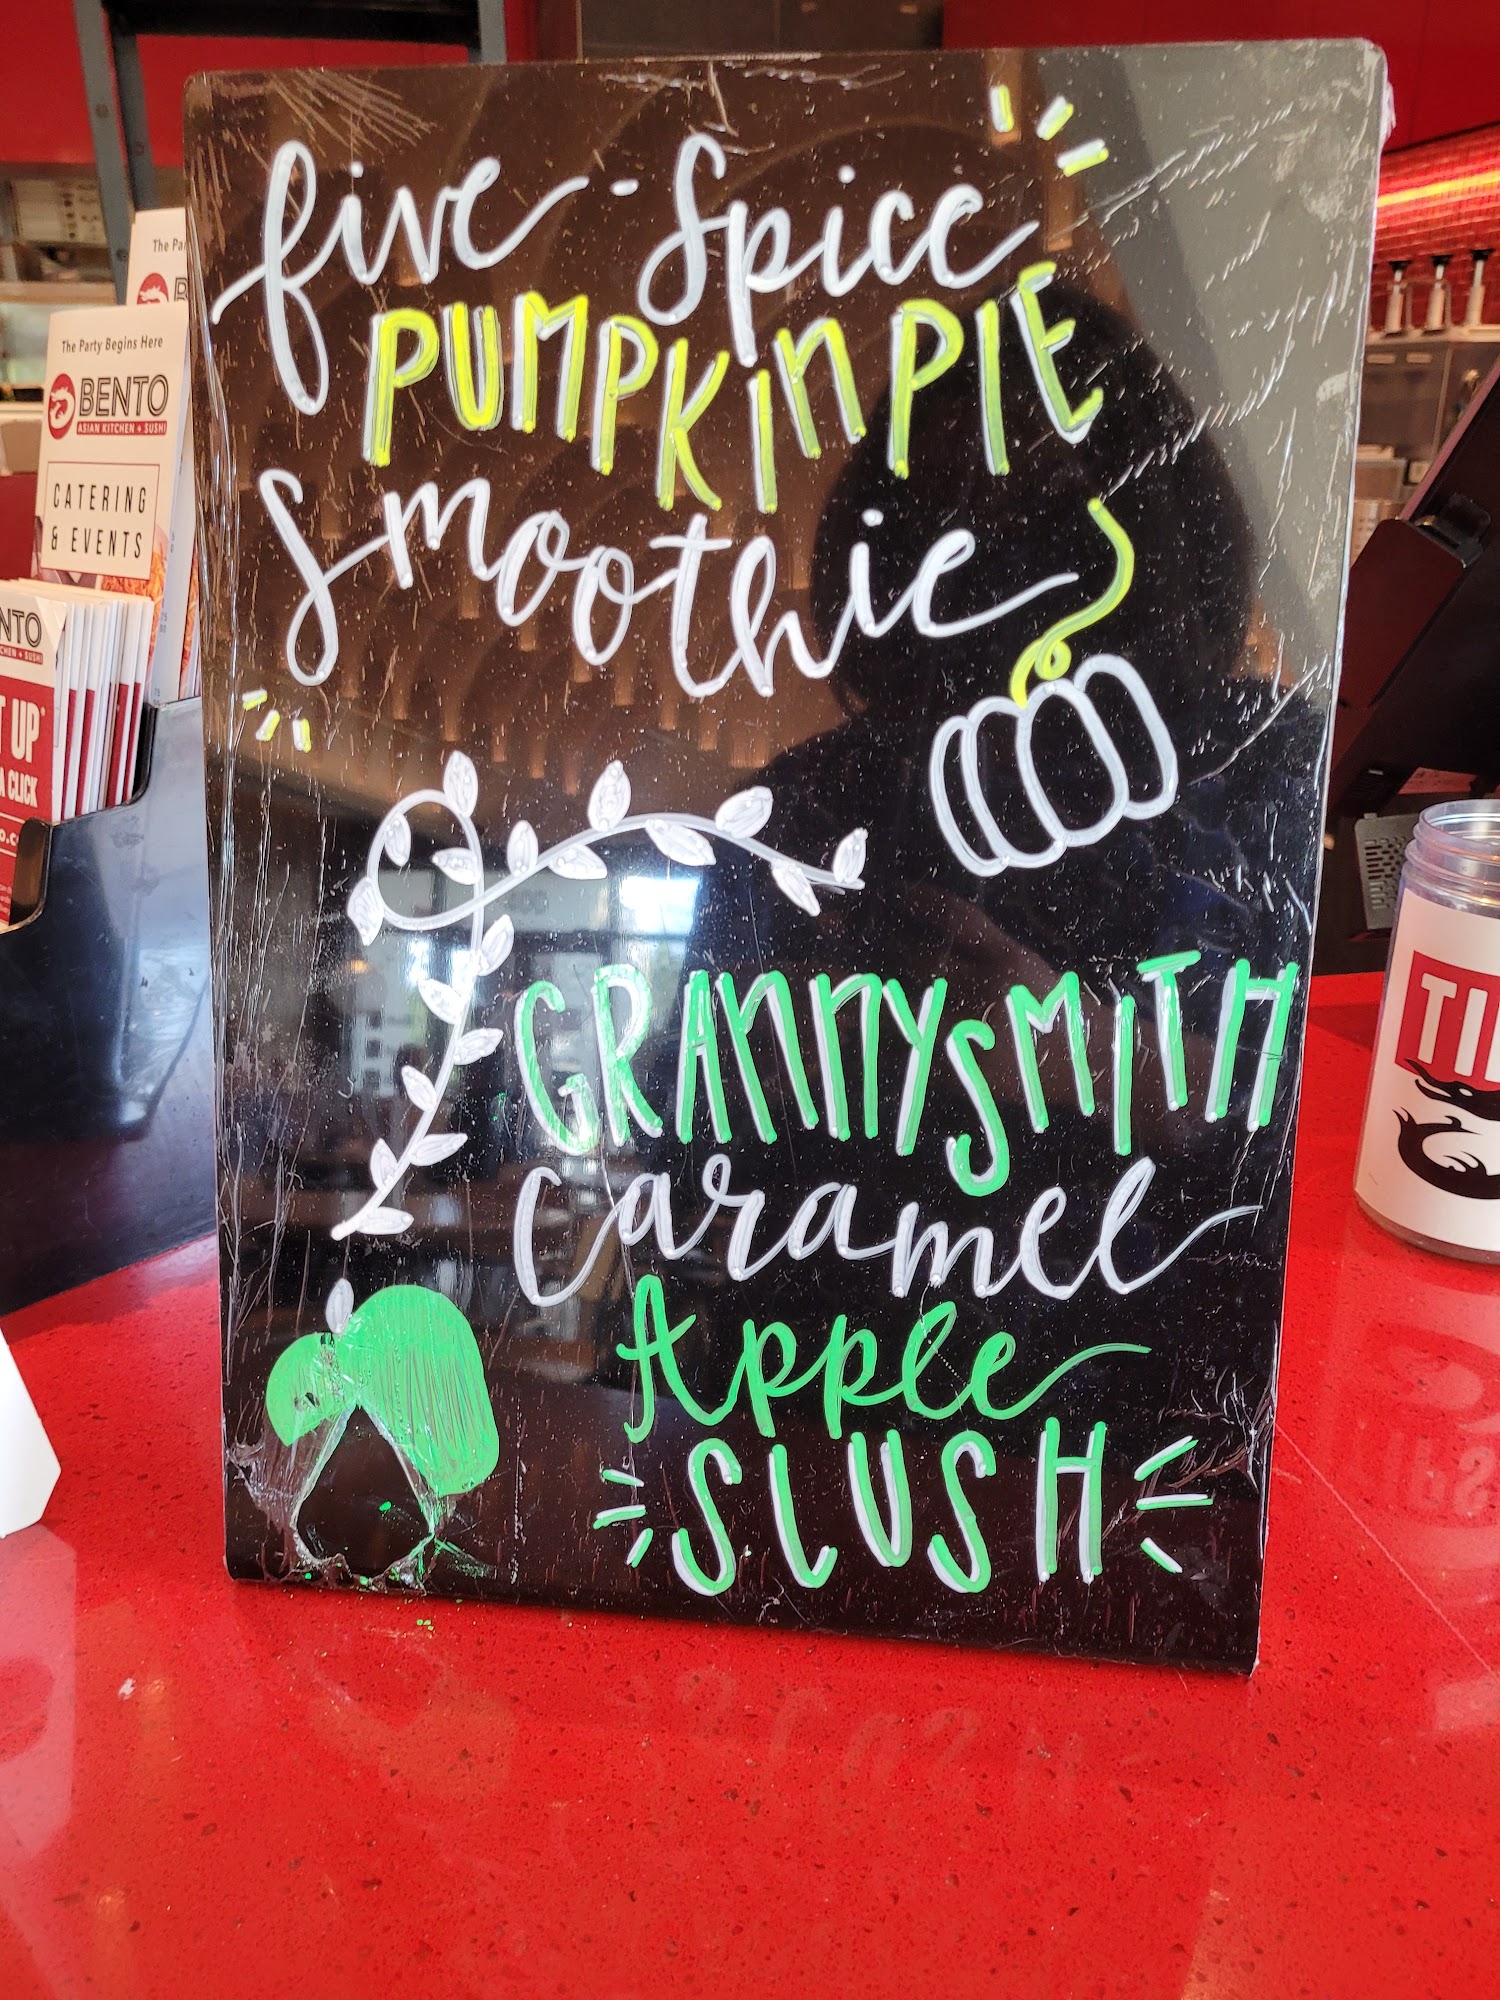 five-Spice
PUMPKIN PIE
Smoothie
GRANNYSMITH
Caramel
Apple
SLUSH
The Party Begins Here
BENTO
ASIAN KITCHEN + SUSHI
CATERING
& EVENTS
The
NTO
UP
A CLICK
TI